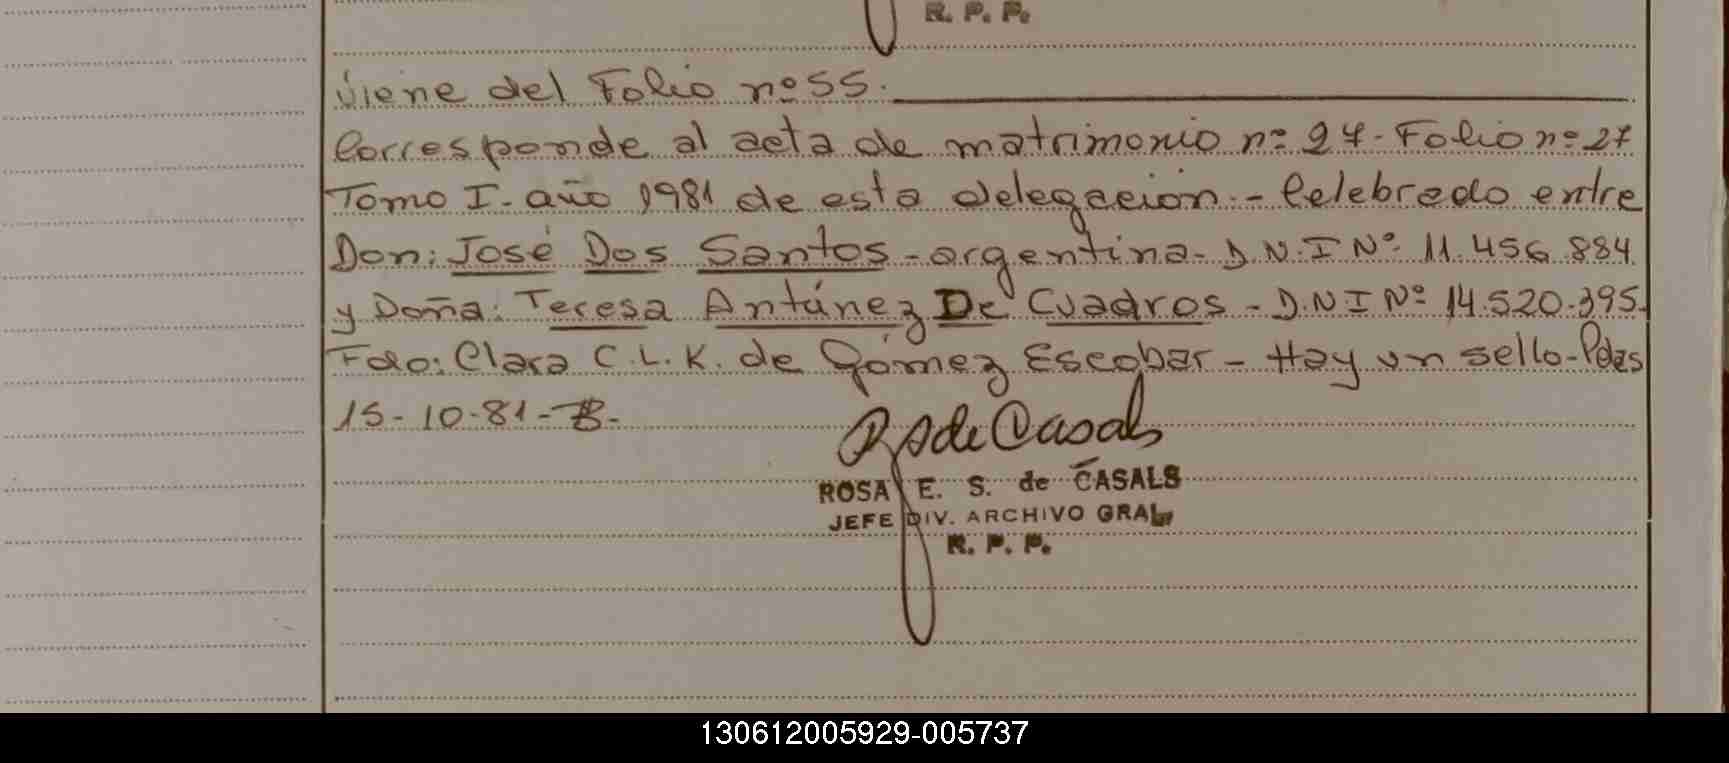 R. P. P.
viene del Folio nº 55.
Corresponde al acta de matrimonio nº 27 - Folio nº 27
Tomo I - año 1981 de esta delegación. - Celebrado entre
Don: José Dos Santos - argentina - D.N.I Nº 11.456.884
y Doña: Teresa Antúnez De Cuadros - D.N.I Nº 14.520.395.
Fdo: Clara C.L.K. de Gómez Escobar - Hay un sello - Pdas
15-10-81-
R S de Casals
ROSA E. S. de CASALS
JEFE DIV. ARCHIVO GRAL.
R. P. P.
130612005929-005737